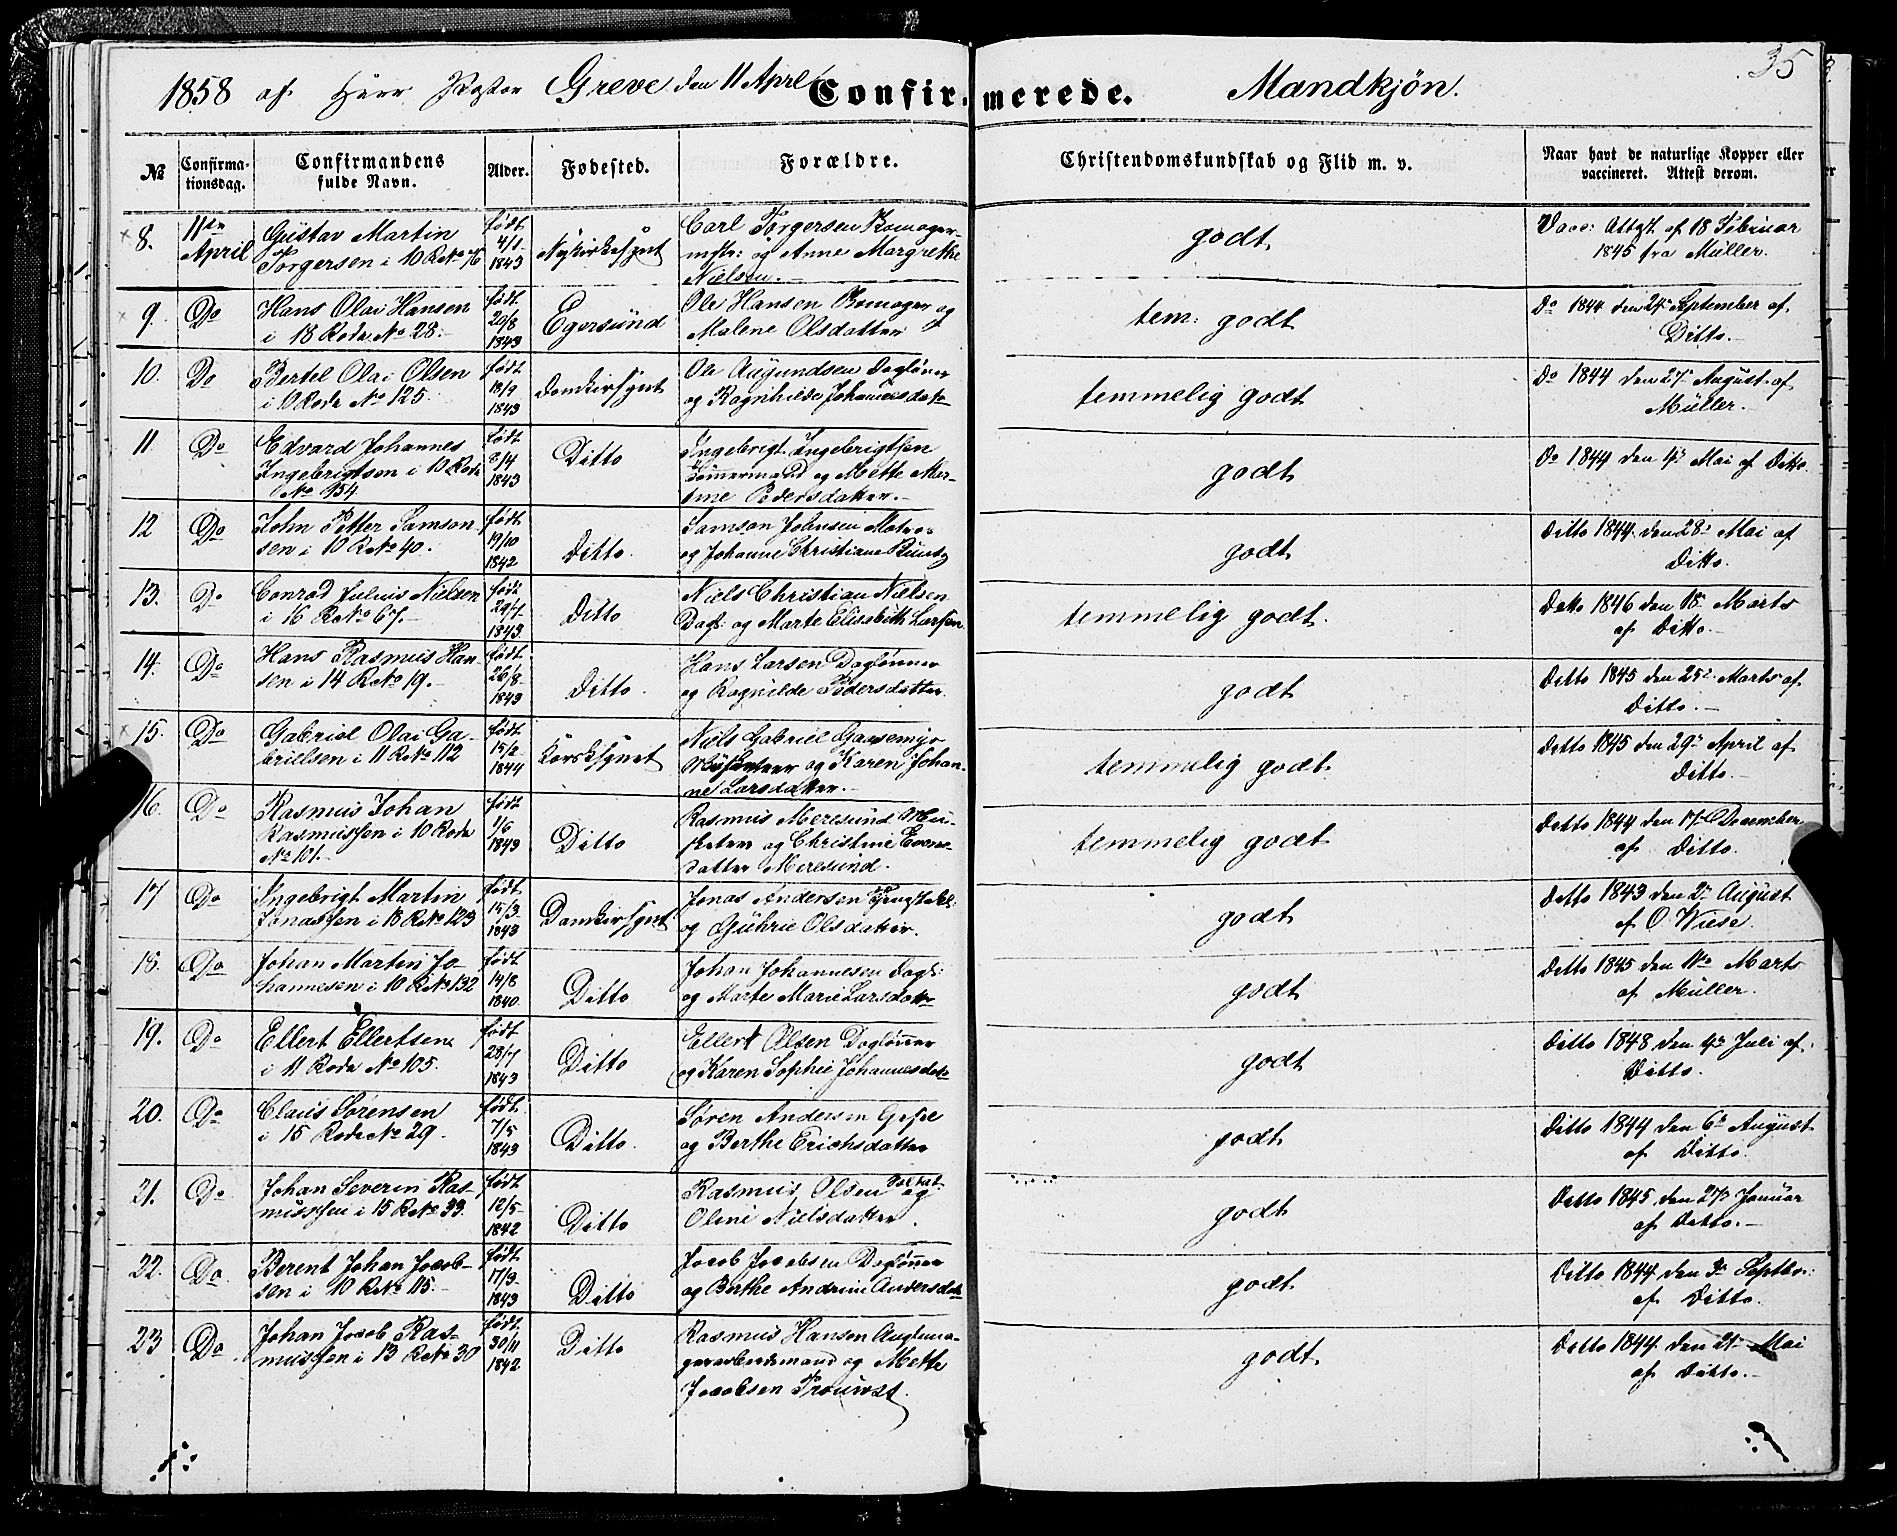 1858 af Herr Pastor Greve den 11 April Confirmerede. Mandkjön. 35
№ Confirmationsdag. Confirmandens fulde Navn. Alder. Fødested. Forældre. Christendomskundskab og Flid m. v. Naar havt de naturlige Kopper eller vaccineret. Attest derom.
8. 11te April Gustav Martin Torgersen i 10 R No 76 født 4/1 1843 Nykirkesognet Carl Torgersen mstr: og Anne Margrethe Nielsen. godt Vacc: Attest af 18 Februar 1845 fra Müller.
9. Do Hans Olai Hansen i 18 Rode No 28. født 20/8 1843 Egersund Ole Hansen og Malene Olsdatter tem: godt Do 1844 den 24de September af Ditto.
10. Do Bertel Olai Olsen i 10 Rode No 125. født 18/9 1843 Domkirsognet Ole Augundsen Dagløner og Ragnhilde Johannesdatr temmelig godt Do 1844 den 27de August af Müller.
11 Do Edvard Johannes Ingebrigtsen i 10 Rode No 154 født 8/4 1843 Ditto Ingebrigt Ingebrigtsen Tømmermand og Mette Martine Pedersdatter. godt Do 1844 den 4de Mai af Ditto.
12 Do John Petter Samsonsen i 10 R No 40. født 19/10 1842 Ditto. Samson Johnsen Matros og Johanne Christiane Kuntz godt Ditto 1844. den 28de Mai af Ditto.
13. Do Conrad Julius Nielsen i 16 R No 67. født 29/7 1843 Ditto Niels Christian Nielsen Dagl: og Marte Elisabeth Larsen temmelig godt. Ditto 1846 den 18 Marts af Ditto.
14. Do Hans Rasmus Hansen i 14 R No 19. født 26/8 1843 Ditto. Hans Larsen Dagløner og Ragnilde Pedersdatter. godt Ditto 1845 den 25de Marts af Ditto.
15. Do Gabriel Olai Gabrielsen i 11 R No 112 født 15/2 1844 Korsksognet Niels Gabriel og Karen Johanne Larsdatter. temmelig godt Ditto 1845 den 29de April af Ditto.
16. Do Rasmus Johan Rasmussen i 10 Rode No 101. født 1/6 1843 Ditto Rasmus Meresund og Christine Evensdatter Meresund. temmelig godt Ditto 1844 den 17de December af Ditto.
17 Do Ingebrigt Martin Jonassen i 18 R No 123 født 15/3 1843 Domkirsognet Jonas Andersen og Guhrie Olsdatter. godt Ditto 1843 den 2de August af O Wiese.
18. Do Johan Martin Johannesen i 10 R No 132 født 14/8 1840. Ditto Johan Johannesen Dagl: og Marte Marie Larsdatr godt Ditto 1845 den 11te Marts af Müller.
19. Do Ellert Ellertsen i 11 Rode No 105. født 28/7 1843 Ditto Ellert Olsen Dagløner og Karen Sophie Johannesdatr godt Ditto 1848 den 4de Juli af Ditto.
20. Do Claus Sörensen i 15 Rode No 29. født 7/5 1843 Ditto. Søren Andersen og Berthe Erichsdatter godt Ditto 1844 den 6te August af Ditto.
21. Do Johan Severin Rasmussen i 15 R No 33. født 12/5 1842 Ditto Rasmus Olsen og Oline Nielsdatter. godt Ditto 1845 den 27de Januar af Ditto.
22. Do Berent Johan Jacobsen i 10 R No 115. født 17/3 1843 Ditto Jacob Jacobsen Dagløner og Berthe Andrine Andersdatr godt Ditto 1844 den 3de Septbr: af Ditto.
23 Do Johan Jacob Rasmussen i 13 R No 30 født 30/11 1842 Ditto Rasmus Hansen og Mette Jacobsen godt. Ditto 1844 den 21de Mai af Ditto.